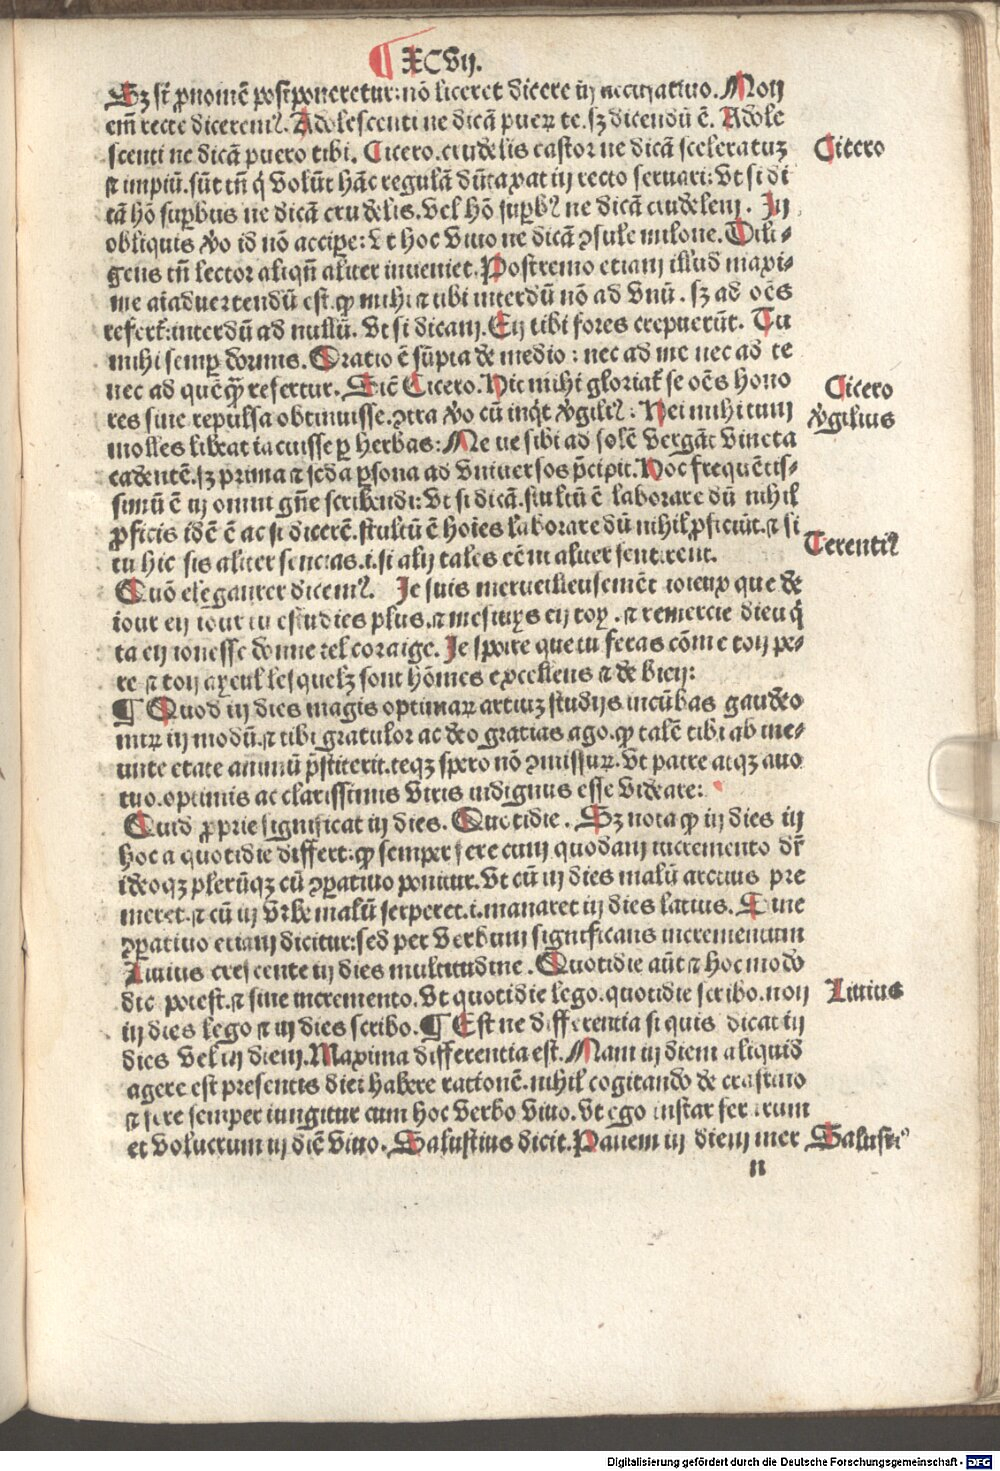 ¶ XCVij.
Sz si ꝓnomē postponeretur: nō liceret dicere in accusatiuo. Non
em̄ recte dicerem⁹. Adolescenti ne dicā pueꝝ te. sz dicendū ē. Adole
scenti ne dicā puero tibi. Cicero. crudelis castor ne dicā sceleratuz
Cicero
⁊ impiū. sūt tn̄ q̇ volūt hāc regulā dūtaxat in recto seruari: Vt si di
cā hō suꝑbus ne dicā crudelis. Vel hō suꝑb⁹ ne dicā crudelem. In
obliquis v̊o id nō acciꝑe: Vt hoc viuo ne dicā ꝯsule milone. Dili-
gens tn̄ lector aliqn̄ aliter inueniet. Postremo etiam illud maxi-
me aīaduertendū est. ꝙ mihi ⁊ tibi interdū nō ad vnū. sz ad oēs
refert̄: interdū ad nullū. Vt si dicam. En tibi fores crepuerūt. Tu
mihi semꝑ dormis. Oratio ē sūpta de medio: nec ad me nec ad te
nec ad quēꝙ̄ refertur. Sic Cicero. Hic mihi gloriat̄ se oēs hono
Cicero
res sine repulsa obtinuisse. ꝯtra v̊o cū inq̇t v̊gili⁹: Hei mihi tum
v̊gilius
molles librat iacuisse ꝑ herbas: Me ne sibi ad solē vergāt vineta
cadentē. sz prima ⁊ sc̄da ꝑsona ad vniuersos p̄cipit. Hoc frequētis-
simū ē in omni gn̄e scribendi: Vt si dicā. stultū ē laborare dū nihil
ꝓficis idē ē ac si dicerē. stultū ē hoīes laborare dū nihil ꝓficiūt. ⁊ si
Terenti⁹
tu hic sis aliter sencias. i. si alij tales eēnt aliter sentirent.
Quō eleganter dicem⁹. Je suis merueilleusemēt ioieux que de
iour en iour tu estudies plus. ⁊ mesiuys en toy. ⁊ remercie dieu q̇
ta en ionesse donne tel coraige. Je spoire que tu feras cōme ton pe-
re ⁊ ton ayeul lesquelz sont hōmes excellens ⁊ de bien:
¶ Quod in dies magis optimaꝝ artiuz studijs incūbas gaudeo
miꝝ in modū. ⁊ tibi gratulor ac deo gratias ago. ꝙ talē tibi ab ine-
unte etate animū p̄stiterit. teqz spero nō ꝯmissuꝝ. Vt patre atqz auo
tuo. optimis ac clarissimis viris indignus esse videare:
Quid ꝓprie significat in dies. Quotidie. Sz nota ꝙ in dies in
hoc a quotidie differt: ꝙ semper fere cum quodam incremento dr̄
ideoqz plerūqz cū ꝯꝑatiuo ponitur. Vt cū in dies malū arctius pre
meret. ⁊ cū in vrbe malū serperet. i. manaret in dies latius. Sine
ꝯꝑatiuo etiam dicitur: sed per verbum significans incrementum
Liuius crescente in dies multitudine. Quotidie aūt ⁊ hoc modo
dic potest. ⁊ sine incremento. Vt quotidie lego. quotidie scribo. non
Liuius
in dies lego ⁊ in dies scribo. ¶ Est ne differentia si quis dicat in
dies vel in diem. Maxima differentia est. Nam in diem aliquid
agere est presentis diei habere rationē. nihil cogitando de crastino
⁊ fere semper iungitur cum hoc verbo viuo. Vt ego instar ferarum
et volucrum in diē viuo. Salustius dicit. Pauem in diem mer
Salusti⁹
n
Digitalisierung gefördert durch die Deutsche Forschungsgemeinschaft - DFG